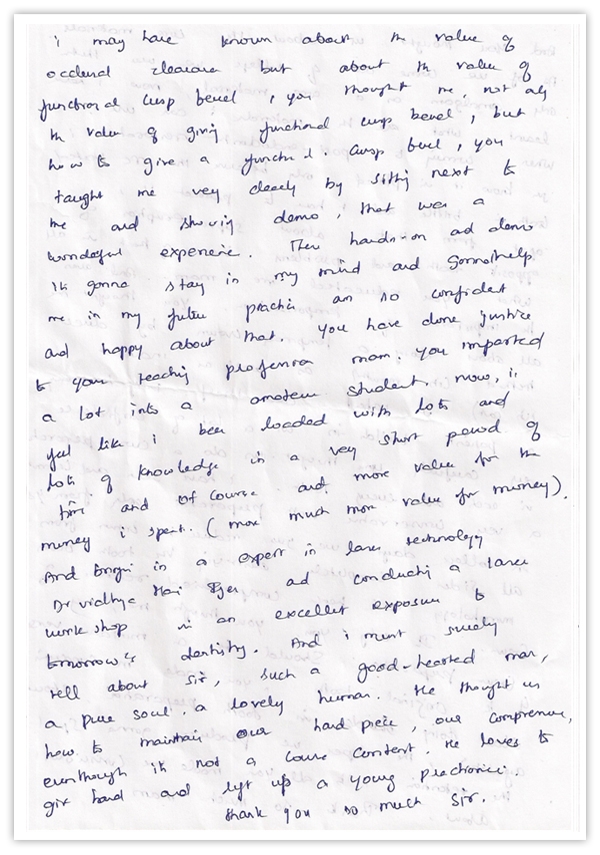 i may have known about th value of
occlusal clearance but about th value of
functional cusp bevel, you thought me, not only
th value of giving functional cusp bevel, but
how to give a functional. Cusp bevel, you
taught me very clearly by sitting next to
me and showing demo, that was a
wonderful experience. Ther hands-on and demo
its gonna stay in my mind and Gonna help
me in my future practice am so confident
and happy about that. You have done justice
to your teaching profession mam. You imparted
a lot into a amateur student. now, i
feel like i been loaded with lots and
lots of knowledge in a very short period of
time and of course and more value for the
money i spent. (more much more value for money).
And bringing in a expert in laser technology
Dr Vidhya Hari Iyer and conducting a laser
work shop is an excellent exposure to
tomorrow's dentistry. And i must surely
tell about Sir, such a good-hearted man,
a pure soul. a lovely human. He thought us
how to maintain our hand piece, our compressor,
eventhough its not a course content. He loves to
give hand and lift up a young practioner
thank you so much Sir.